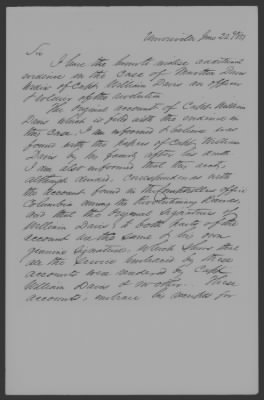 Sir
I have the honor to enclose additional
evidence in the case of Martha Davis
Widow of Capt. William Davis an officer
& soldier of the revolution
The original account of Capt William
Davis which is filed with the evidence in
this case. I am informed & believe was
found with the papers of Capt. William
Davis by his family after his death
I am also informed that this
account corresponds with
the account found in the Comptrollers office
Columbia among the Revolutionary
and that the original signatures of
William Davis to both parts of the
account are the same & his own
genuine signature. Which shows that
all the service embraced by these
accounts were rendered by Capt
William Davis & no other. These
accounts, embrace his for